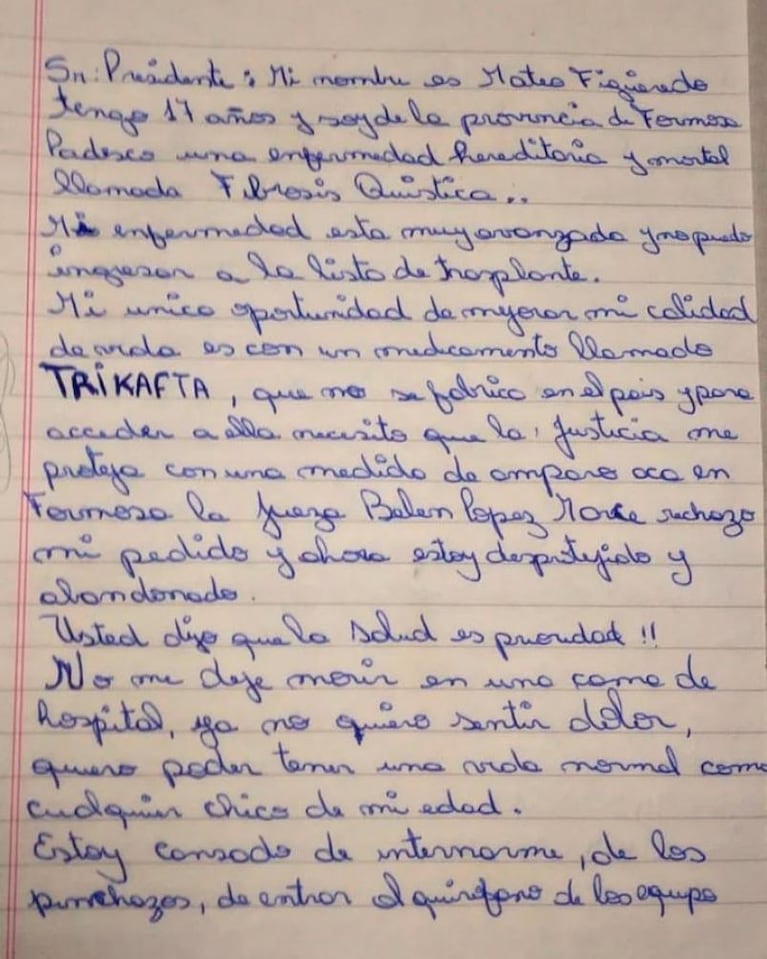 Sr: Presidente: Mi nombre es Mateo Figueredo
tengo 17 años y soy de la provincia de Formosa
Padesco una enfermedad hereditaria y mortal
llamada Fibrosis Quistica..
Mi enfermedad esta muy avanzada y no puedo
ingresar a la lista de trasplante.
Mi unica oportunidad de mejorar mi calidad
de vida es con un medicamento llamado
TRIKAFTA, que no se fabrica en el pais y para
acceder a ella necesito que la justicia me
proteja con una medida de amparo aca en
Formosa la jueza Belen Lopez rechazo
mi pedido y ahora estoy desprotejido y
abandonado.
Usted dijo que la salud es prioridad!!
No me deje morir en una cama de
hospital, ya no quiero sentir dolor,
quiero poder tener una vida normal como
cualquier chico de mi edad.
Estoy cansado de internarme, de los
pinchazos, de entrar al quirofano de los equipo